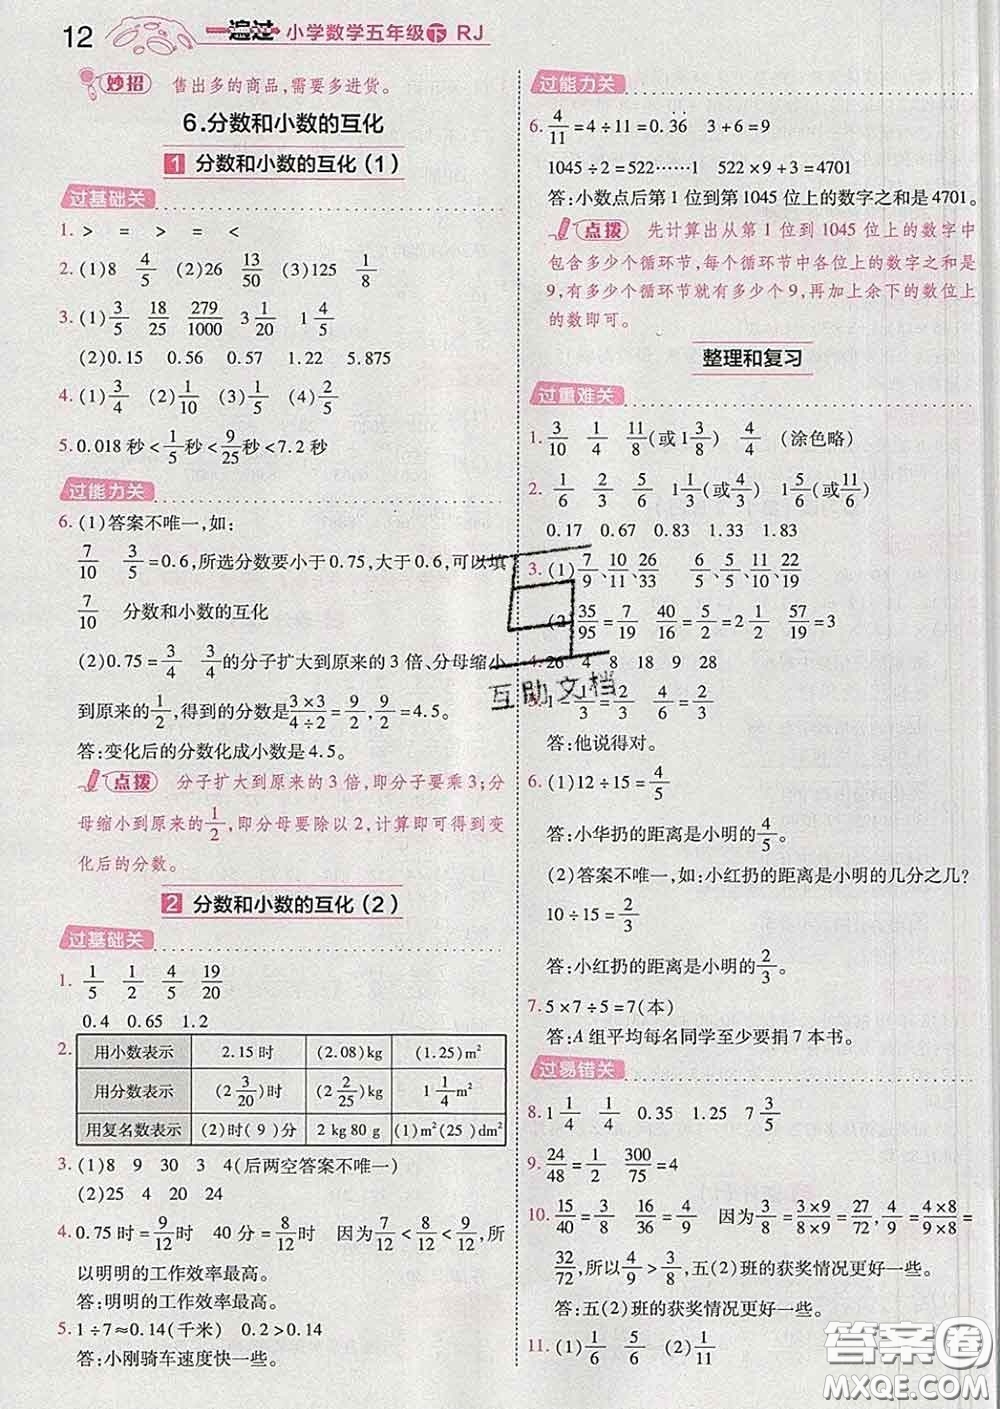 12 一遍过 小学数学五年级下 RJ
妙招 售出多的商品,需要多进货。
6.分数和小数的互化
1 分数和小数的互化(1)
过基础关
1. > = > = <
2. (1)8 4/5 (2)26 13/50 (3)125 1/8
3. (1)3/5 18/25 279/1000 3 1/20 1 4/5
(2)0.15 0.56 0.57 1.22 5.875
4. (1)3/4 (2)1/10 (3)1/5 (4)4/5
5. 0.018秒<1/5秒<9/25秒<7.2秒
过能力关
6. (1)答案不唯一,如:
7/10 3/5=0.6,所选分数要小于0.75,大于0.6,可以填
7/10 分数和小数的互化
(2)0.75=3/4 3/4的分子扩大到原来的3倍、分母缩小
到原来的1/2,得到的分数是3×3/4÷2=9/2,9/2=4.5。
答:变化后的分数化成小数是4.5。
点拨 分子扩大到原来的3倍,即分子要乘3;分
母缩小到原来的1/2,即分母要除以2,计算即可得到变
化后的分数。
2 分数和小数的互化(2)
过基础关
1. 1/5 1/2 4/5 19/20
0.4 0.65 1.2
2. 用小数表示 2.15时 (2.08)kg (1.25)m²
用分数表示 (2 3/20)时 (2 2/25)kg 1 1/4 m²
用复名数表示 (2)时(9)分 2 kg 80 g (1)m²(25)dm²
3. (1)8 9 30 3 4(后两空答案不唯一)
(2)25 4 5 24
4. 0.75时=9/12时 40分=8/12时 因为7/12<8/12<9/12,所
以明明的工作效率最高。
答:明明的工作效率最高。
5. 1÷7≈0.14(千米) 0.2>0.14
答:小刚骑车速度快一些。
过能力关
6. 4/11=4÷11=0.3̇6̇ 3+6=9
1045÷2=522……1 522×9+3=4701
答:小数点后第1位到第1045位上的数字之和是4701。
点拨 先计算出从第1位到1045位上的数字中
包含多少个循环节,每个循环节中各位上的数字之和是
9,有多少个循环节就有多少个9,再加上余下的数位上
的数即可。
整理和复习
过重难关
1. 3/10 1/4 11/8(或1 3/8) 4/4 (涂色略)
2. 1/6 2/3 5/6 1 1/3(或4/3) 1 5/6(或11/6)
0.17 0.67 0.83 1.33 1.83
3. (1)7/9、10/11、26/33 5/6、5/9、11/12、22/19
(2)35/95=7/19 40/16=5/2=2 1/2 57/19=3
4. 26 4 8 18 9 28
5. 1-1/3=2/3 2/3=4/6
答:他说得对。
6. (1)12÷15=4/5
答:小华扔的距离是小明的4/5。
(2)答案不唯一,如:小红扔的距离是小明的几分之几?
10÷15=2/3
答:小红扔的距离是小明的2/3。
7. 5×7÷5=7(本)
答:A组平均每名同学至少要捐7本书。
过易错关
8. 1 1/4 1/4 0.35 1.25 7 3/5
9. 24/48=1/2 300/75=4
10. 15/40=3/8 16/36=4/9 因为3/8=3×9/8×9=27/72,4/9=4×8/9×8=
32/72,所以4/9>3/8,五(2)班的获奖情况更好一些。
答:五(2)班的获奖情况更好一些。
11. (1)1/6 5/6 (2)1/11
互助文档
答案圈
MXQE.COM